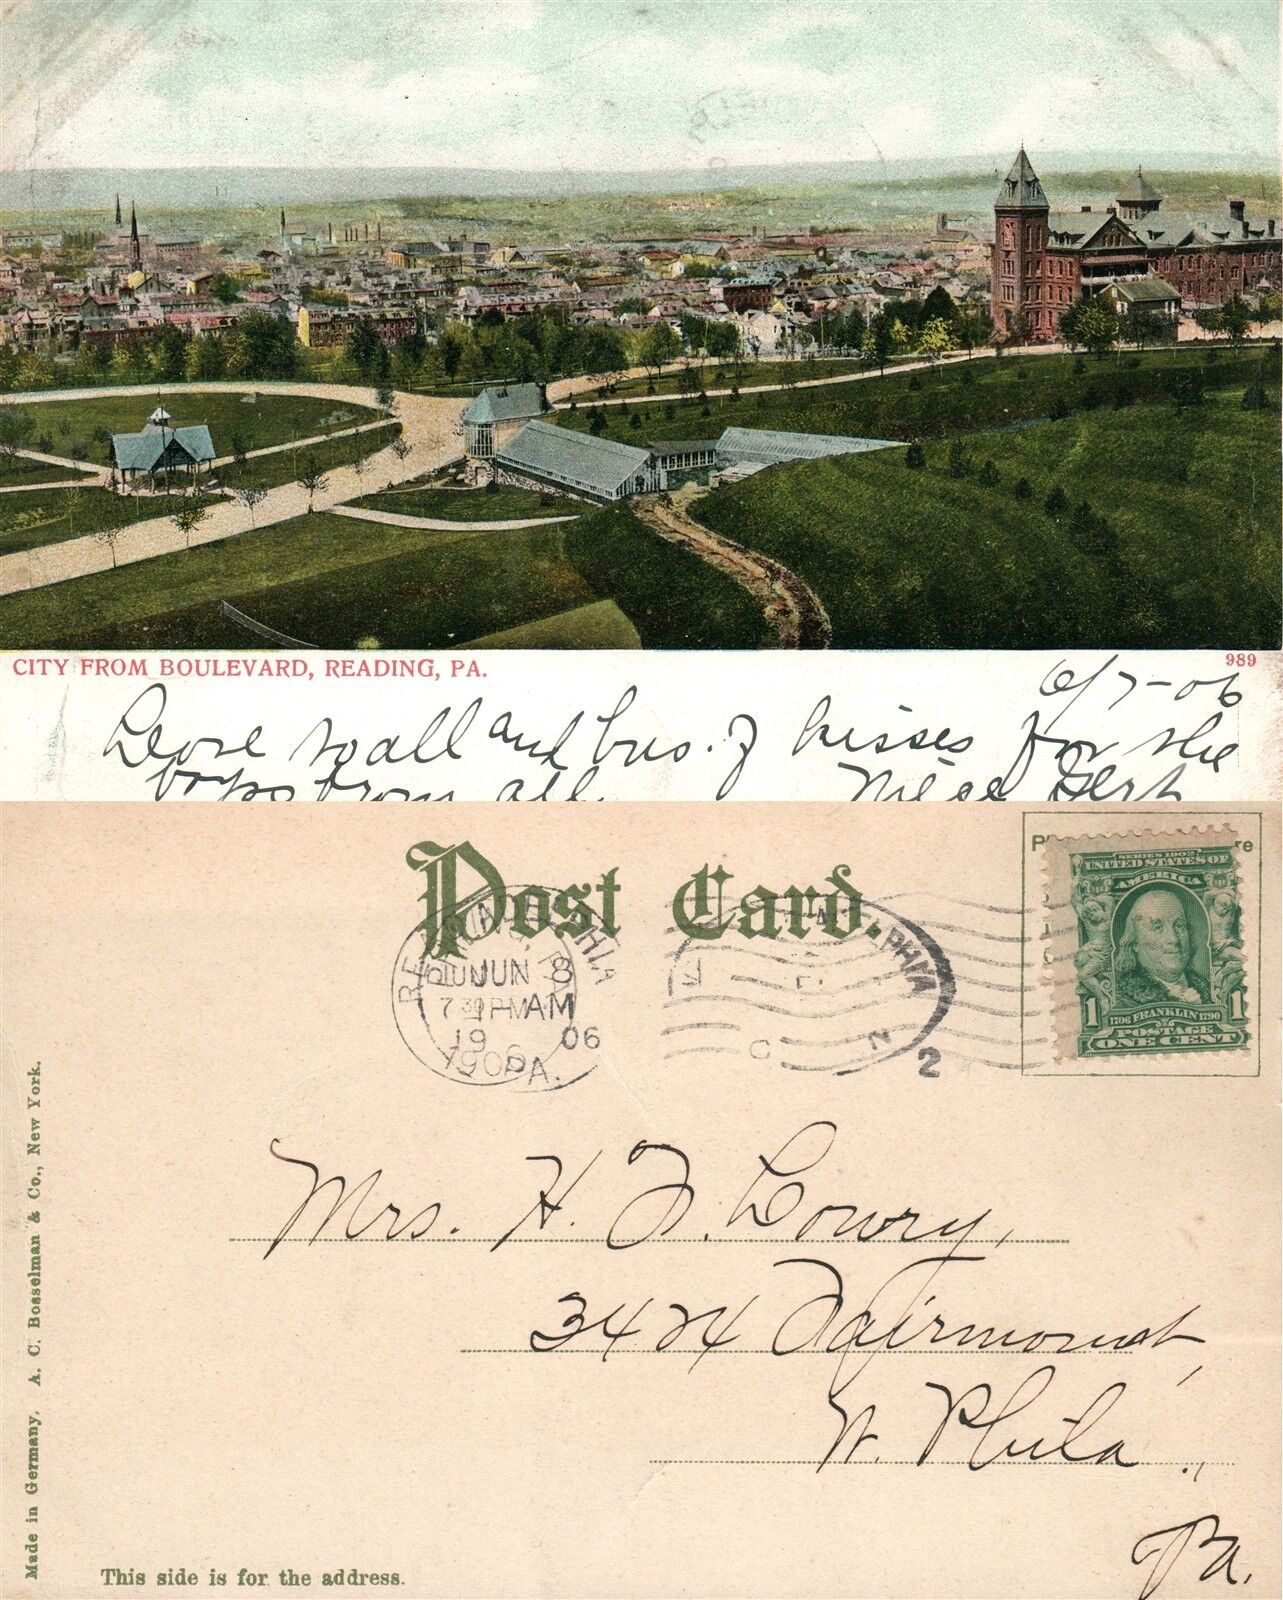 CITY FROM BOULEVARD, READING, PA.
989
6/7-06
Love to all and bus. of kisses for the
boys from all. Niece Gert
Post Card.
SERIES 1902
UNITED STATES OF
AMERICA
1706 FRANKLIN 1790
1 1
POSTAGE
ONE CENT
PHILADELPHIA
JUN 8
AM
7 30 PM
19 06
1906
PA.
2
Mrs. H. F. Lowry,
3424 Fairmount,
W. Phila.,
Pa.
Made in Germany. A. C. Bosselman & Co., New York.
This side is for the address.